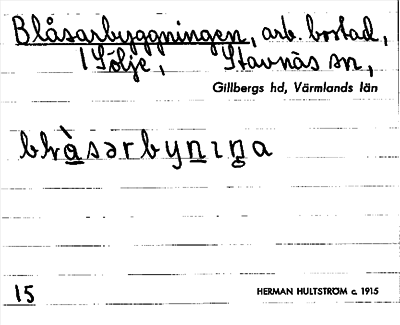 Blåsarbyggningen, arb. bostad,
1 Sölje, Stavnäs sn,
Gillbergs hd, Värmlands län
blɤ̀sərbyniŋa
15
HERMAN HULTSTRÖM c. 1915